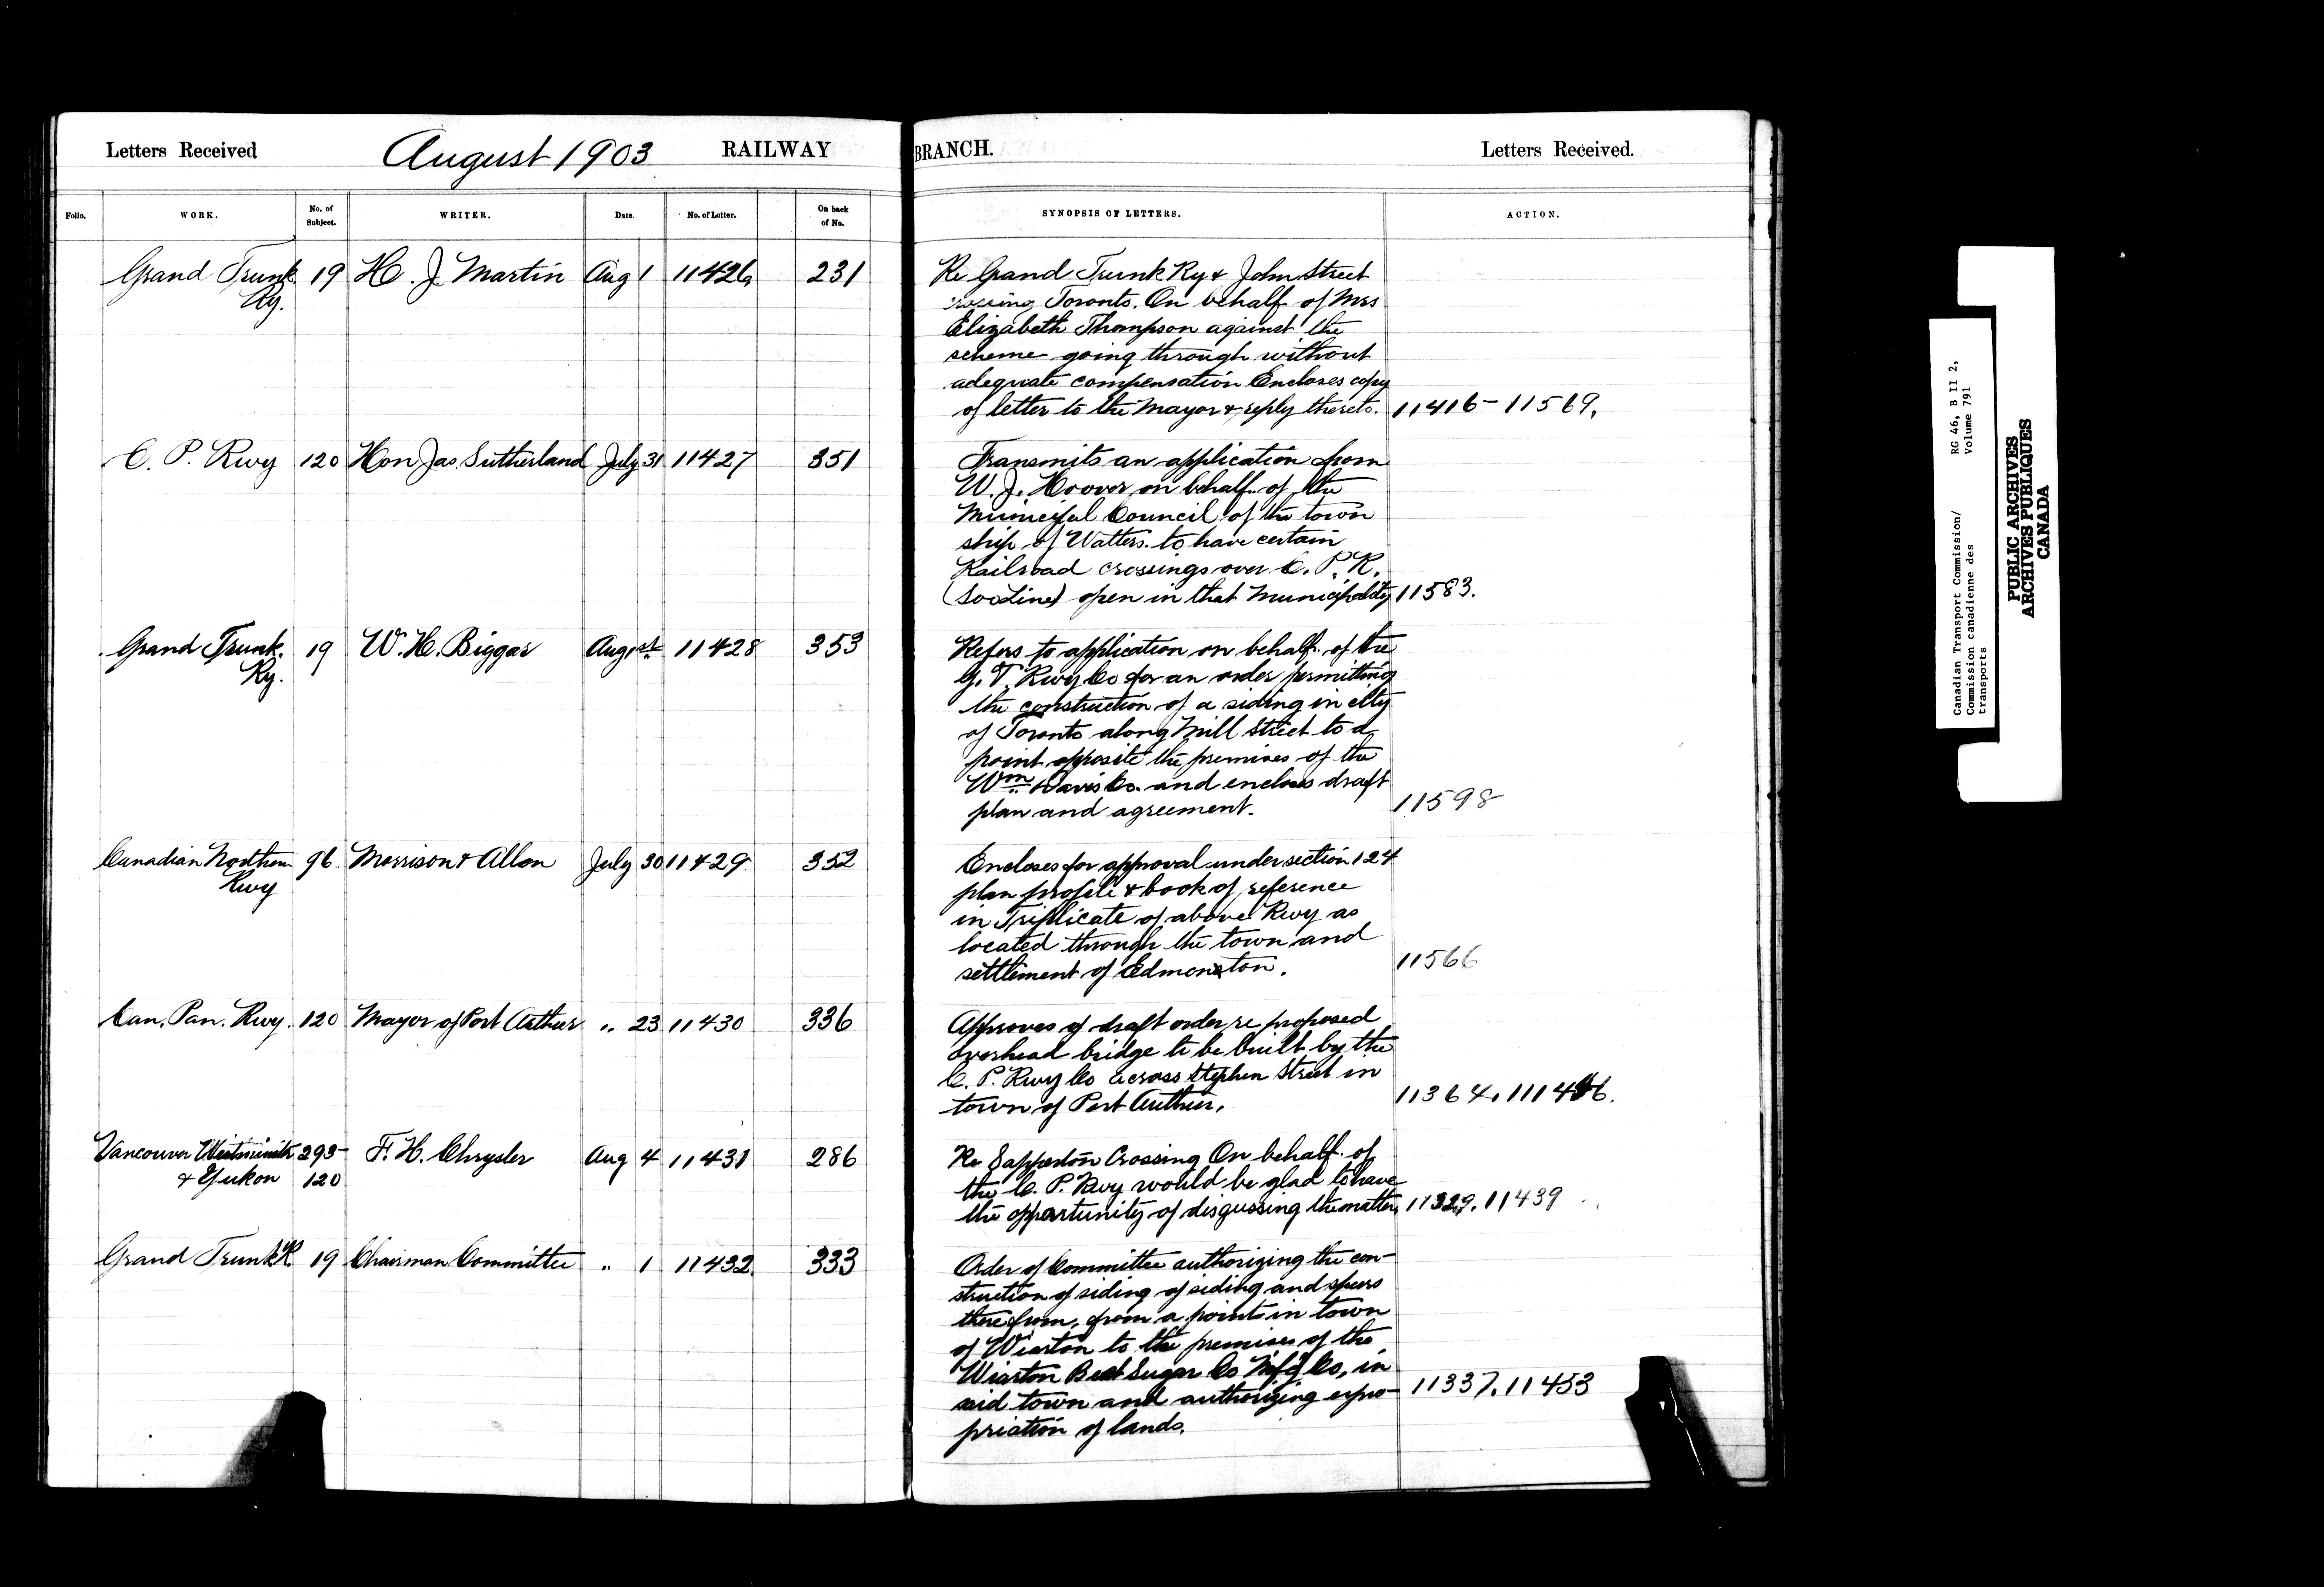 Letters Received August 1903 RAILWAY BRANCH. Letters Received.
Folio. WORK. No. of Subject. WRITER. Date. No. of Letter. On back of No. SYNOPSIS OF LETTERS. ACTION.
Grand Trunk 19 H. J. Martin Aug 1 11426 231 Re Grand Trunk Ry & John Street
Ry. crossing Toronto. On behalf of Mrs
Elizabeth Thompson against the
scheme going through without
adequate compensation Encloses copy
of letter to the Mayor & reply thereto. 11416-11569.
C. P. Rwy 120 Hon Jas Sutherland July 31 11427 351 Transmits an application from
W. J. Hoover on behalf of the
Municipal Council of the town
ship of Watters. to have certain
Railroad crossings over C. P. R.
(Soo Line) open in that Municipality 11583.
Grand Trunk. 19 W. H. Biggar Aug 1st 11428 353 Refers to application on behalf of the
Ry. G. T. Rwy Co for an order permitting
the construction of a siding in city
of Toronto along Mill Street to a
point opposite the premises of the
Wm Davis Co. and encloses draft
plan and agreement. 11598
Canadian Northern 96 Morrison & Allon July 30 11429 352 Encloses for approval under section 124
Rwy plan profile & book of reference
in Triplicate of above Rwy as
located through the town and
settlement of Edmonton. 11566
Can. Pan. Rwy. 120 Mayor of Port Arthur " 23 11430 336 Approves of draft order re proposed
overhead bridge to be built by the
C. P. Rwy Co across Stephen Street in
town of Port Arthur. 11364.
Vancouver Westminster 293- F. H. Chrysler Aug 4 11431 286 Re Sapperton Crossing On behalf of
& Yukon 120 the C. P. Rwy would be glad to have
the opportunity of disgussing the matter 11329. 11439
Grand Trunk R 19 Chairman Committee " 1 11432 333 Order of Committee authorizing the con-
struction of siding of siding and spurs
therefrom, from a point in town
of Wiarton to the premises of the
Wiarton Beet Sugar Co M'f'g Co, in
said town and authorizing expro- 11337. 11453
priation of lands.
Canadian Transport Commission/ RG 46, B II 2,
Commission canadienne des Volume 791
transports
PUBLIC ARCHIVES
ARCHIVES PUBLIQUES
CANADA